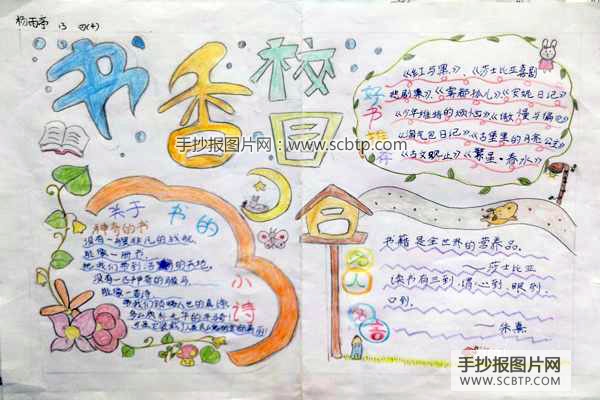 杨雨亭 13 四(4)
书香校园
《红与黑》、《莎士比亚喜剧
悲剧集》、《雾都孤儿》《安妮日记》
好书推荐
《少年维特的烦恼》《傲慢与偏见》
《淘气包日记》《古堡里的月亮公主》
《古文观止》《繁星·春水》
手抄报图片网:www.scbtp.com
关于书的小诗
神奇的书
没有一艘非凡的战舰,
能像一册书,
把我们带到浩的天地。
没有一匹神奇的骏马
能像一首诗
带我们领略人世的真谛。
名人名言
书籍是全世界的营养品。
——莎士比亚
读书有三到,谓心到,眼到,
口到,
——朱熹
手抄报图片网
www.SCBTP.COM